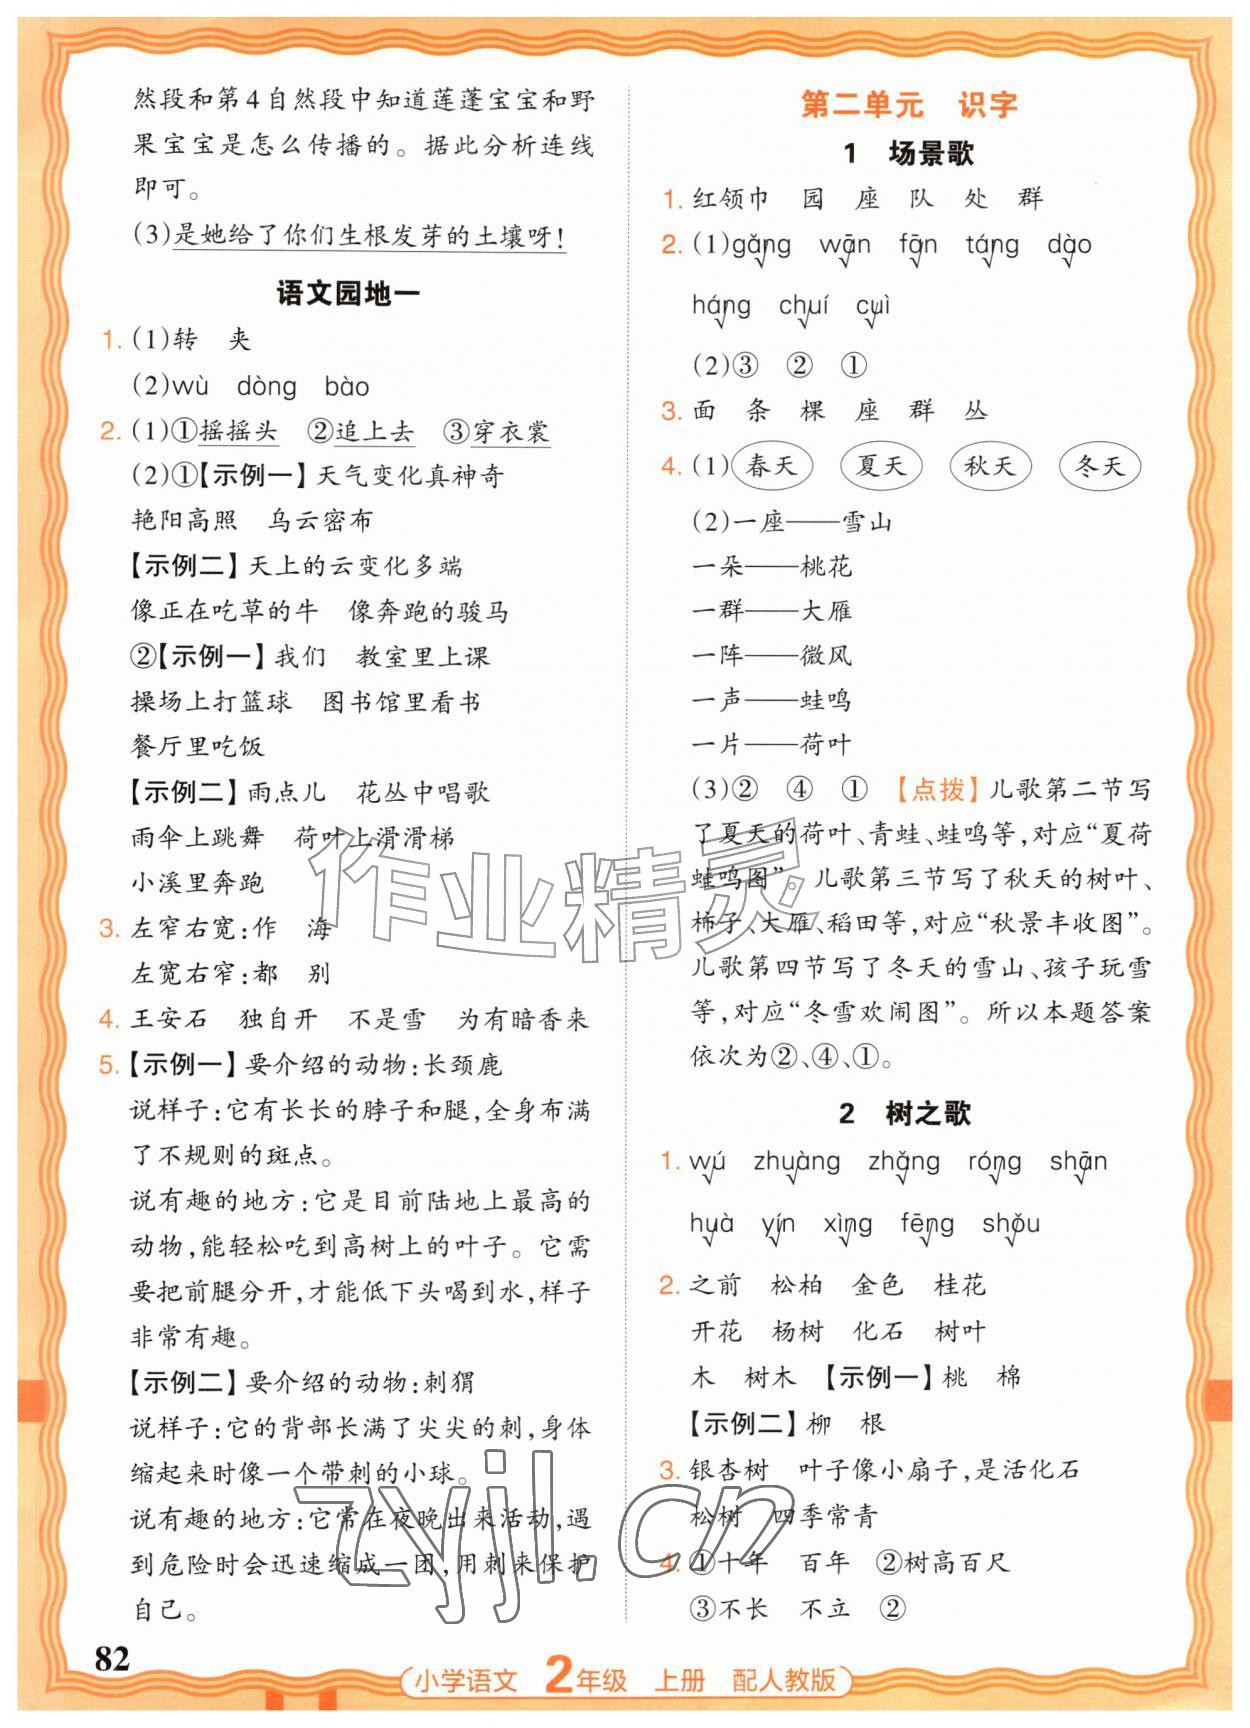 然段和第4自然段中知道莲蓬宝宝和野
果宝宝是怎么传播的。据此分析连线
即可。
(3)是她给了你们生根发芽的土壤呀!
语文园地一
1. (1)转 夹
(2)wù dòng bào
2. (1)①摇摇头 ②追上去 ③穿衣裳
(2)①【示例一】天气变化真神奇
艳阳高照 乌云密布
【示例二】天上的云变化多端
像正在吃草的牛 像奔跑的骏马
②【示例一】我们 教室里上课
操场上打篮球 图书馆里看书
餐厅里吃饭
【示例二】雨点儿 花丛中唱歌
雨伞上跳舞 荷叶上滑滑梯
小溪里奔跑
3. 左窄右宽:作 海
左宽右窄:都 别
4. 王安石 独自开 不是雪 为有暗香来
5. 【示例一】要介绍的动物:长颈鹿
说样子:它有长长的脖子和腿,全身布满
了不规则的斑点。
说有趣的地方:它是目前陆地上最高的
动物,能轻松吃到高树上的叶子。它需
要把前腿分开,才能低下头喝到水,样子
非常有趣。
【示例二】要介绍的动物:刺猬
说样子:它的背部长满了尖尖的刺,身体
缩起来时像一个带刺的小球。
说有趣的地方:它常在夜晚出来活动,遇
到危险时会迅速缩成一团,用刺来保护
自己。
第二单元 识字
1 场景歌
1. 红领巾 园 座 队 处 群
2. (1)gǎng wān fān táng dào
háng chuí cuì
(2)③ ② ①
3. 面 条 棵 座 群 丛
4. (1)春天 夏天 秋天 冬天
(2)一座——雪山
一朵——桃花
一群——大雁
一阵——微风
一声——蛙鸣
一片——荷叶
(3)② ④ ① 【点拨】儿歌第二节写
了夏天的荷叶、青蛙、蛙鸣等,对应“夏荷
蛙鸣图”。儿歌第三节写了秋天的树叶、
柿子、大雁、稻田等,对应“秋景丰收图”。
儿歌第四节写了冬天的雪山、孩子玩雪
等,对应“冬雪欢闹图”。所以本题答案
依次为②、④、①。
2 树之歌
1. wú zhuàng zhǎng róng shān
huà yín xìng fēng shǒu
2. 之前 松柏 金色 桂花
开花 杨树 化石 树叶
木 树木 【示例一】桃 棉
【示例二】柳 根
3. 银杏树 叶子像小扇子,是活化石
松树 四季常青
4. ①十年 百年 ②树高百尺
③不长 不立 ②
作业精灵
zyjl.cn
82
小学语文 2年级 上册 配人教版